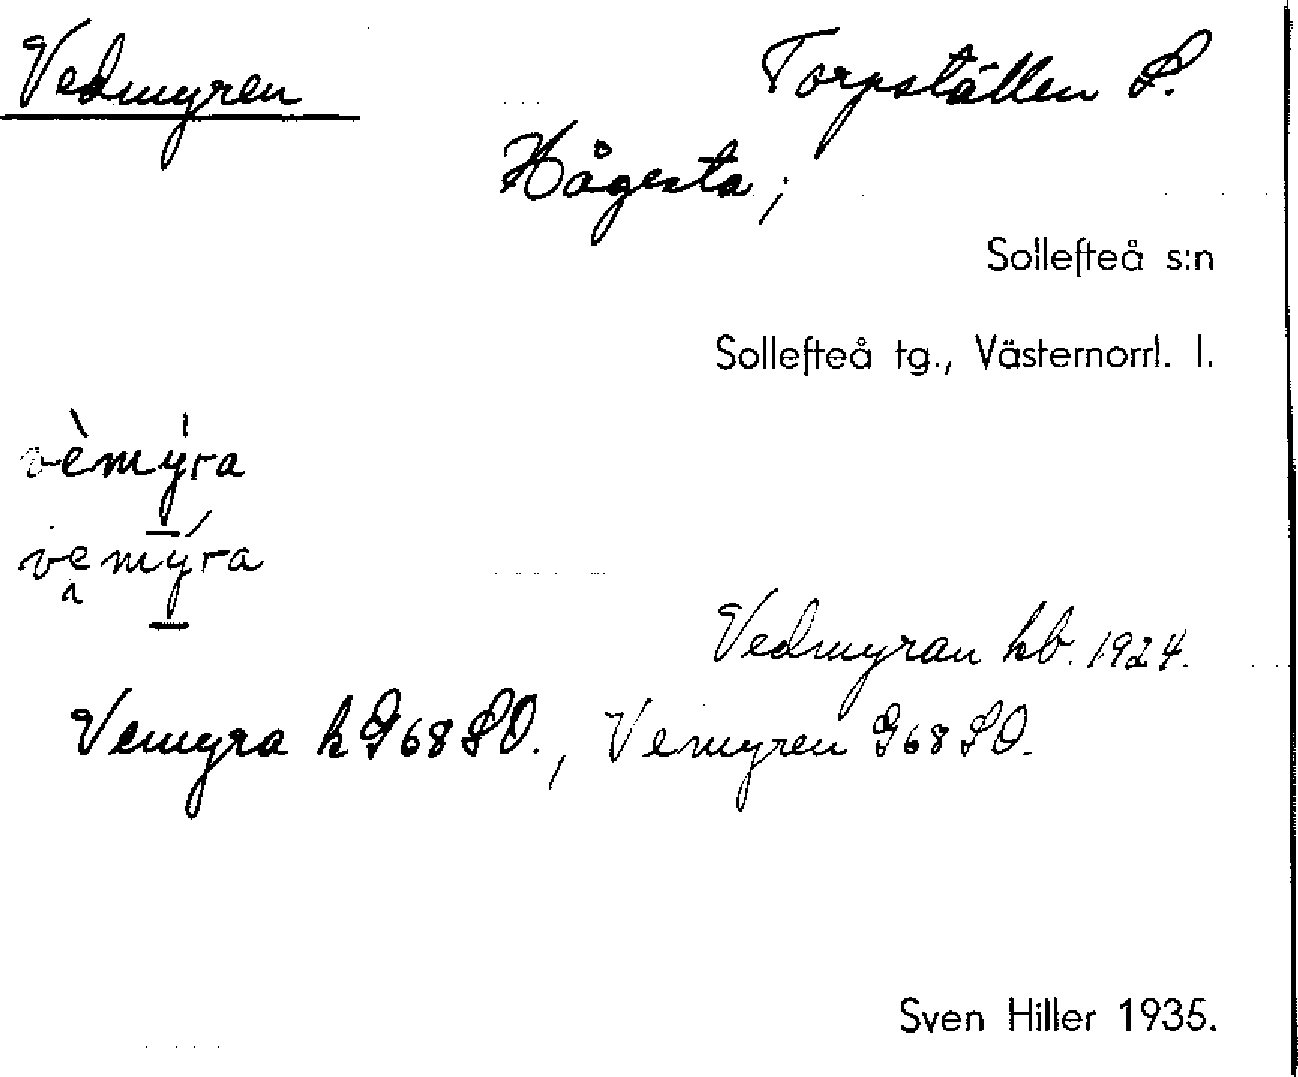 Vedmyren Torpställen S.
Hågesta;
Sollefteå s:n
Sollefteå tg., Västernorrl. l.
vèmýra
vemýra
Vedmyran kb. 1924.
Vemyra k G68SO., Vemyren G68SO.
Sven Hiller 1935.